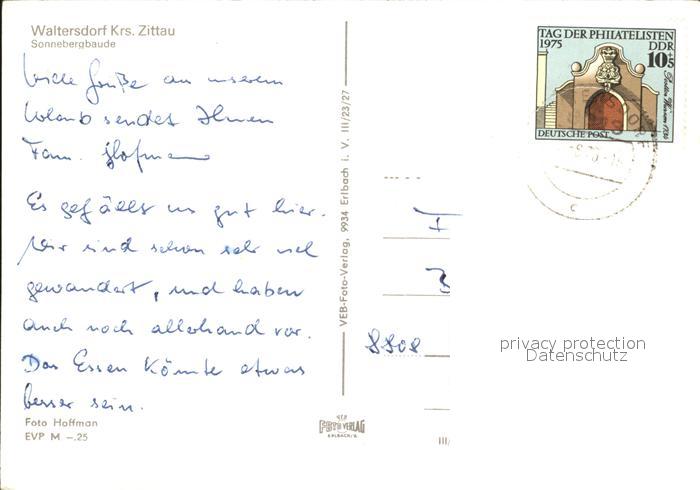 Waltersdorf Krs. Zittau
Sonnebergbaude
Viele Grüße an unserem
Urlaub sendet Ihnen
Fam. Hofmann
Es gefällt uns gut hier.
Wir sind schon sehr viel
gewandert, und haben
auch noch allerhand vor.
Das Essen könnte etwas
besser sein.
Foto Hoffman
EVP M –.25
VEB-Foto-Verlag, 9934 Erlbach i. V. III/23/27
VEB
FOTO VERLAG
ERLBACH/V.
TAG DER PHILATELISTEN
1975
DDR
10+5
DEUTSCHE POST
c
8808
III/
privacy protection
Datenschutz